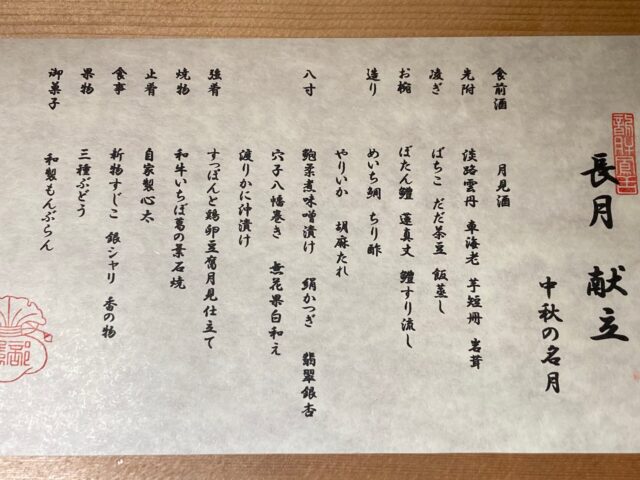 長月 献立
中秋の名月
食前酒 月見酒
先附 淡路雲丹 車海老 芋短册 岩茸
凌ぎ ばちこ だだ茶豆 飯蒸し
お椀 ぼたん鱧 蓮真丈 鱧すり流し
造り めいち鯛 ちり酢
やりいか 胡麻たれ
八寸 鮑柔煮味噌漬け 絹かつぎ 翡翠銀杏
穴子八幡巻き 無花果白和え
渡りかに沖漬け
強肴 すっぽんと鶏卵豆腐月見仕立て
焼物 和牛いちぼ葛の葉石焼
止肴 自家製心太
食事 新物すじこ 銀シャリ 香の物
果物 三種ぶどう
御菓子 和製もんぶらん